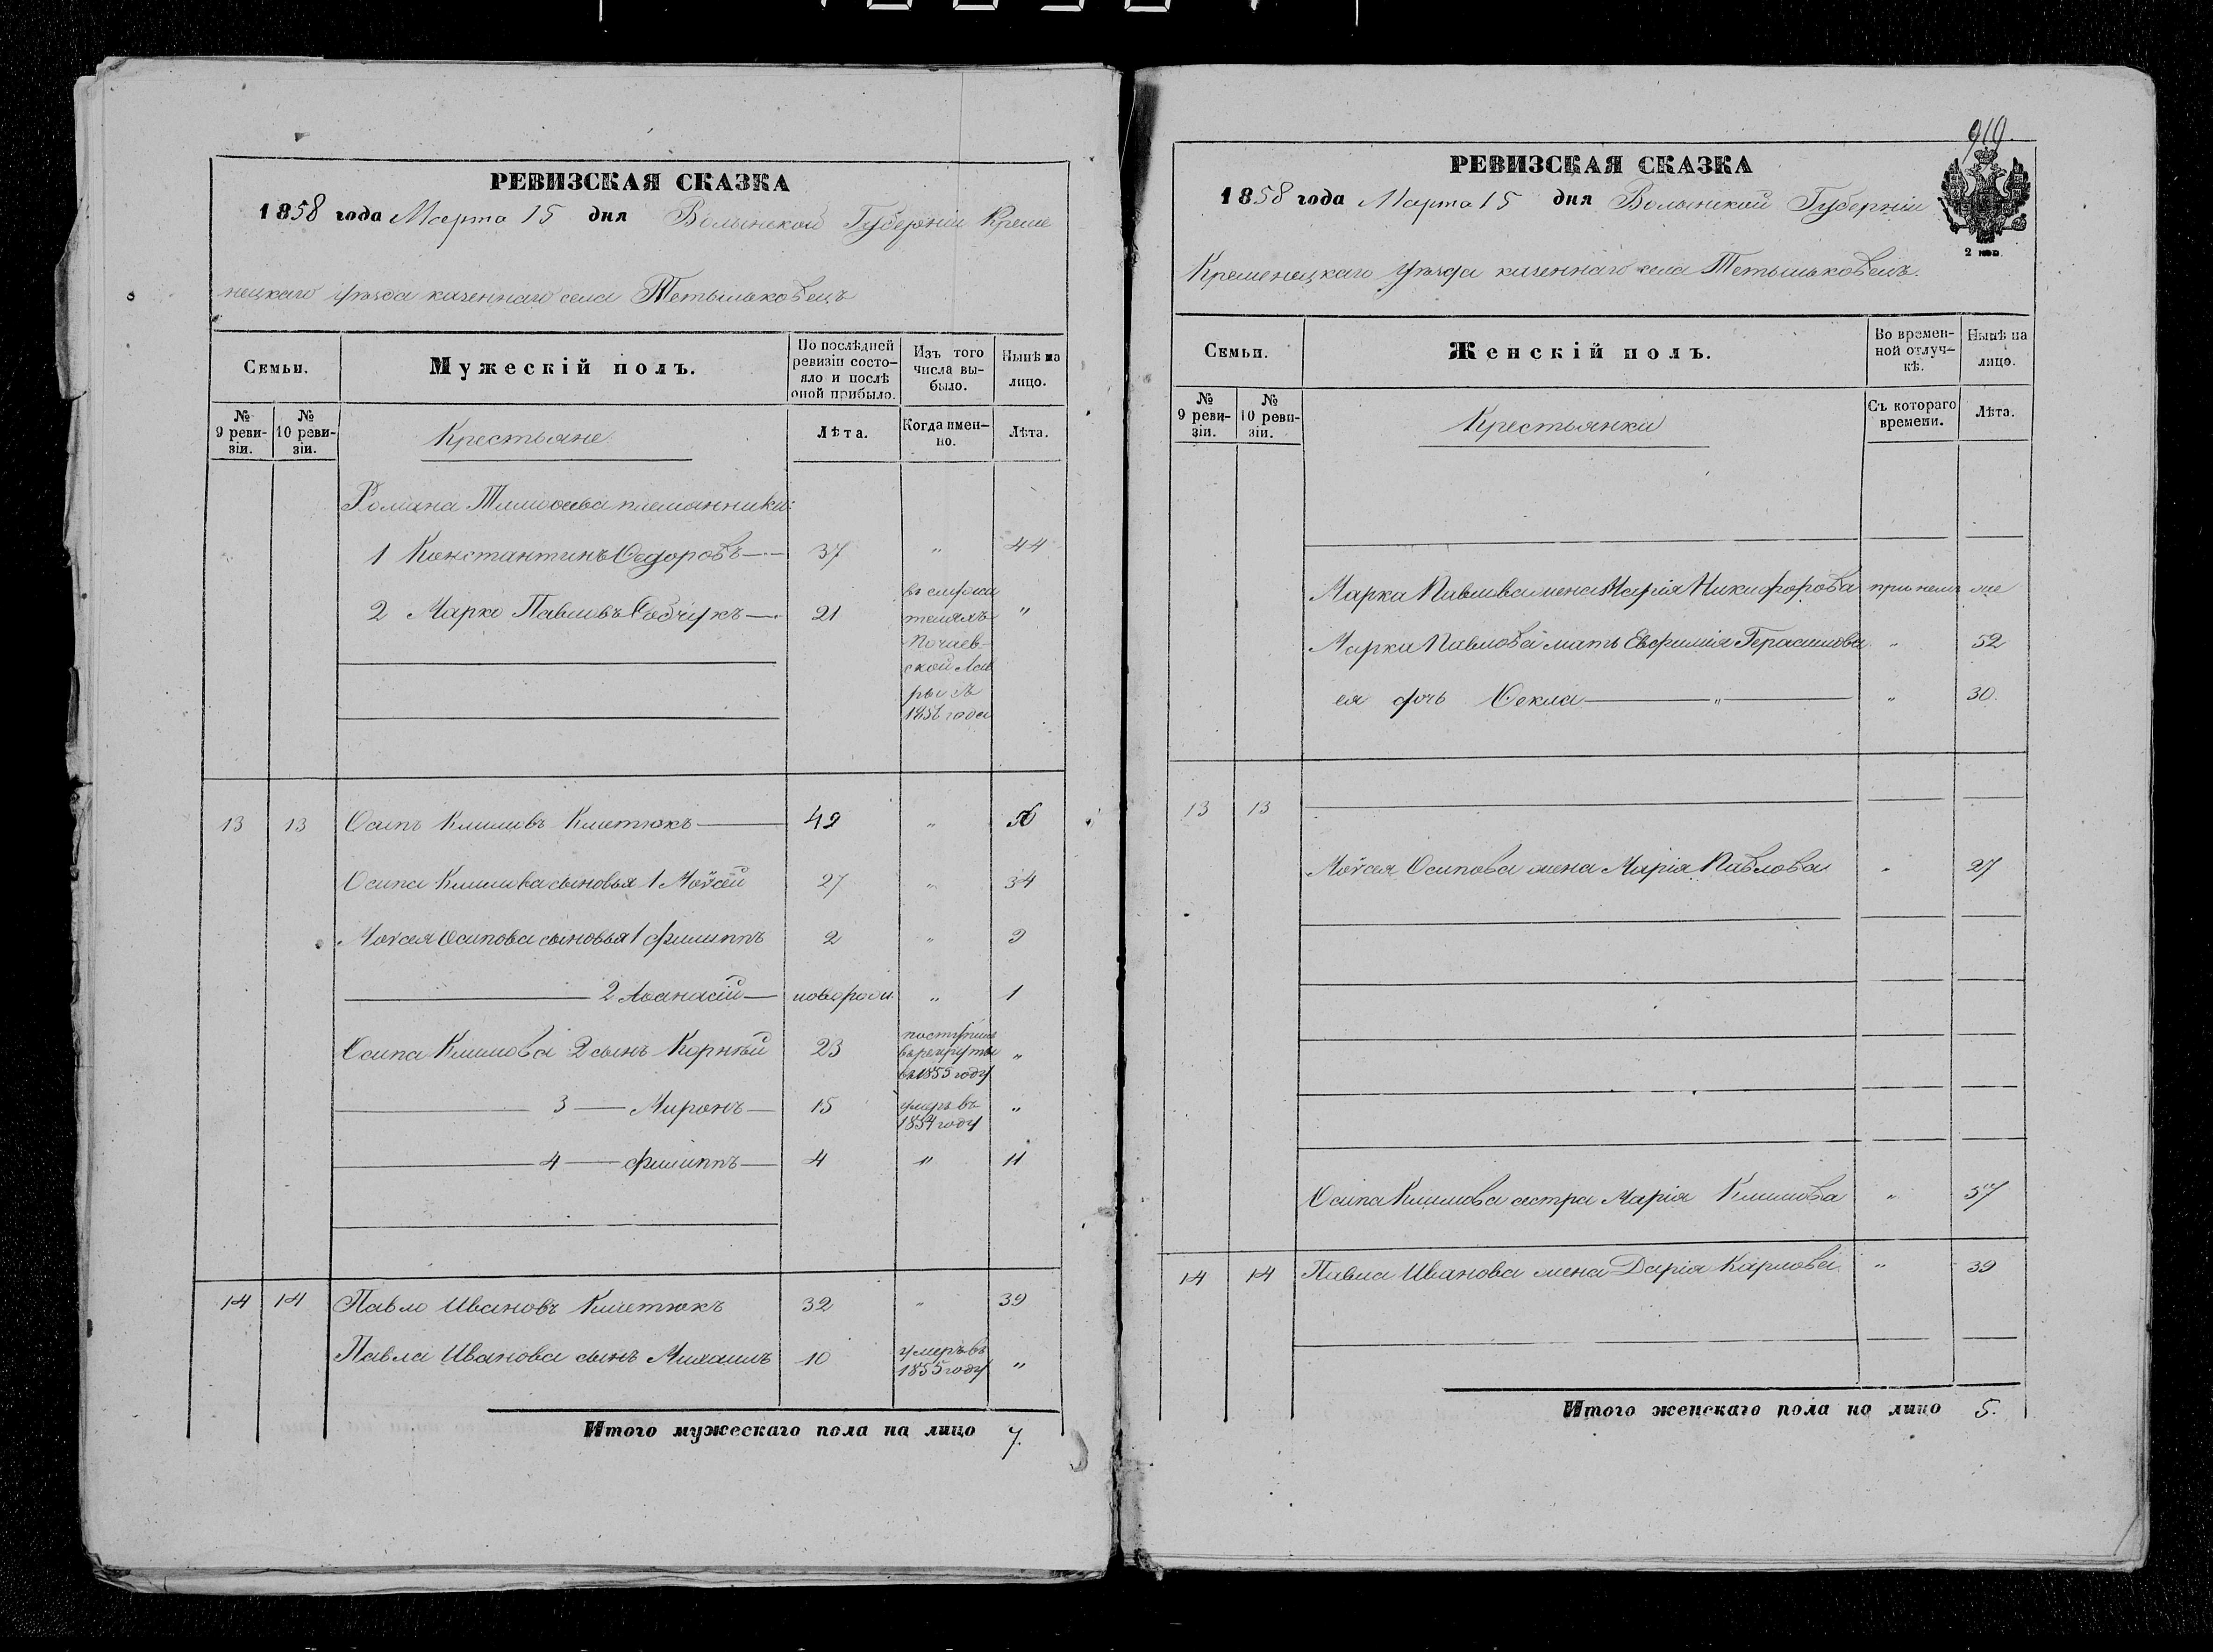 РЕВИЗСКАЯ СКАЗКА
1858 года Марта 15 дня Волынской Губерніи Креме
нецкаго уѣзда казеннаго села Тетыльковецъ
Семьи.
Мужескій полъ.
По послѣдней
ревизіи состо-
яло и послѣ
оной прибыло.
Изъ того
числа вы-
было.
Нынѣ на
лицо.
№
9 реви-
зіи.
№
10 реви-
зіи.
Крестьяне
Лѣта.
Когда имен-
но.
Лѣта.
Романа Тимоѳеева племянники:
1 Константинъ Ѳедоровъ 37 " 44
2 Марко Павловъ 21 "
въ
Почаев-
ской Лав
ры съ
года
13 13 Осипъ Климовъ Клетюкъ 49 "
Осипа Климова сыновья 1 Моѵсей 27 " 34
Моѵсея Осипова сыновья 1 Филиппъ 2 " 9
2 Аѳанасій новорож. " 1
Осипа Климова 2 сынъ Корнѣй 23 "
поступилъ
въ рекруты
въ 1855 году
3 Миронъ 15 "
умеръ въ
1854 году
4 Филиппъ 4 " 11
14 14 Павло Ивановъ Клетюкъ 32 " 39
Павла Иванова сынъ Михаилъ 10 "
умеръ въ
1855 году
Итого мужескаго пола на лицо 7.
919.
РЕВИЗСКАЯ СКАЗКА
1858 года Марта 15 дня Волынской Губерніи
2 коп.
Кременецкаго уѣзда казеннаго села Тетыльковецъ.
Семьи.
Женскій полъ.
Во времен-
ной отлуч-
кѣ.
Нынѣ на
лицо.
№
9 реви-
зіи.
№
10 реви-
зіи.
Крестьянки
Съ котораго
времени.
Лѣта.
Марка Павлова жена Марія Никифорова при немъ же
Марка Павлова мать Евфимія Герасимова " 52
ея дочь Ѳекла " " 30.
13 13
Моѵсея Осипова жена Марія Павлова " 27
Осипа Климова сестра Марія Климова " 57
14 14 Павла Иванова жена Дарія Карпова " 39
Итого женскаго пола на лицо 5.